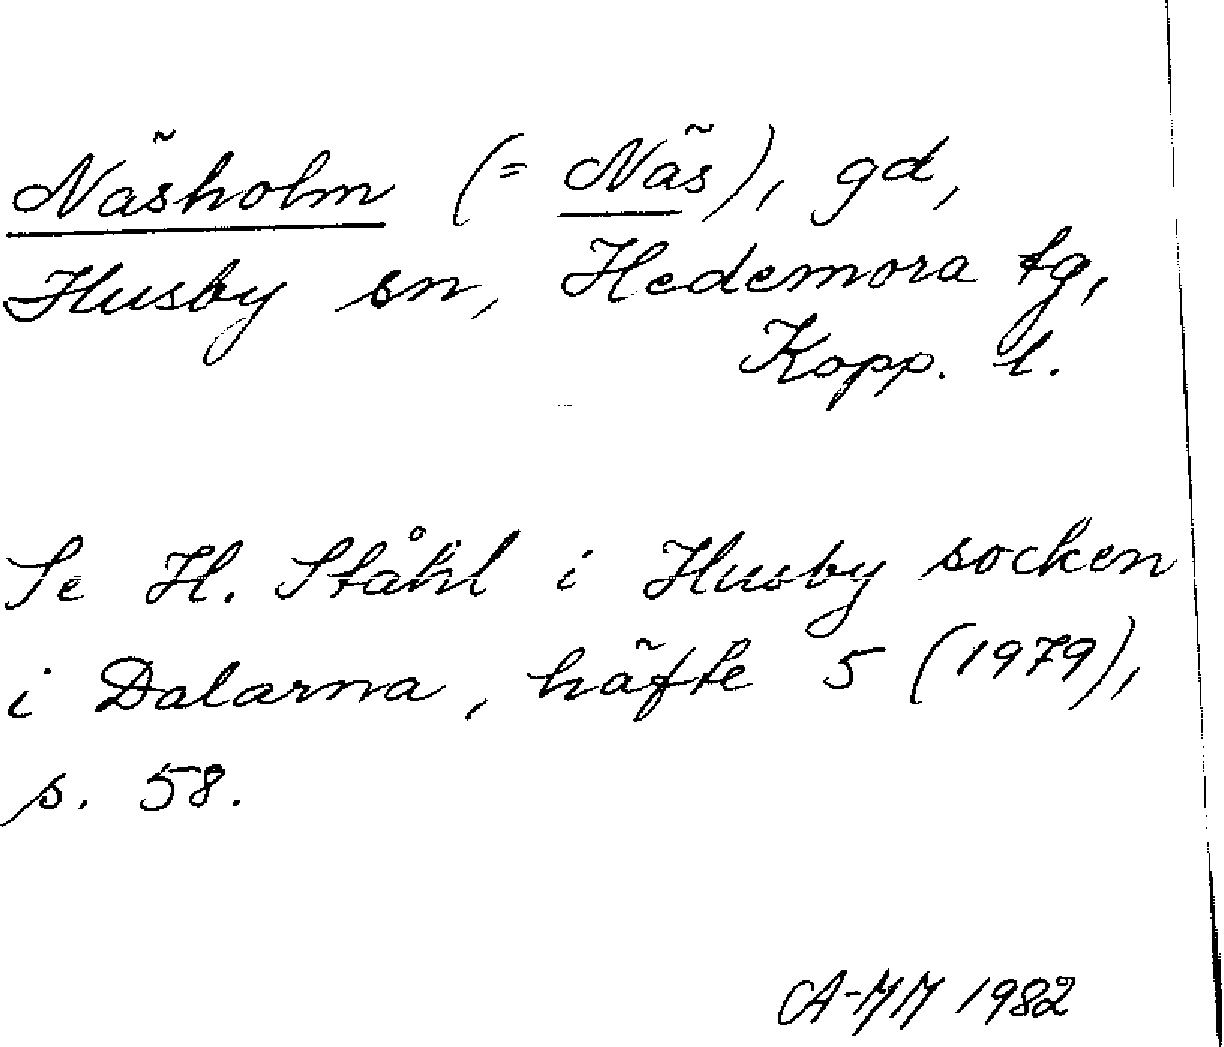 Näsholm (= Näs), gd,
Husby sn, Hedemora tg,
Kopp. l.
Se H. Ståhl i Husby socken
i Dalarna, häfte 5 (1979),
s. 58.
A-MM 1982